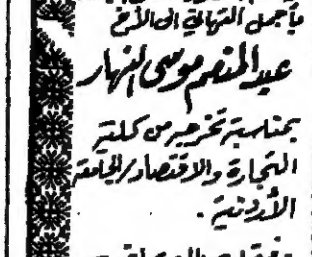 بأجمل التهاني إلى الأخ
عبد المنعم موسى النهار
بمناسبة تخرجه من كلية
التجارة والاقتصاد/الجامعة
الأردنية .